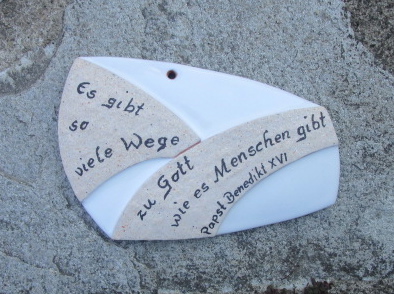 Es gibt
so
viele Wege
zu Gott
wie es Menschen gibt
Papst Benedikt XVI